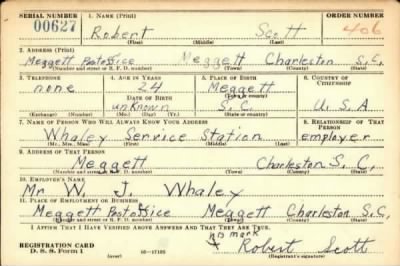 SERIAL NUMBER 1. NAME (Print) ORDER NUMBER
00627 Robert Scott 406
(First) (Middle) (Last)
2. ADDRESS (Print)
Meggett Postoffice Meggett Charleston S.C.
(Number and street or R. F. D. number) (Town) (County) (State)
3. TELEPHONE 4. AGE IN YEARS 5. PLACE OF BIRTH 6. COUNTRY OF CITIZENSHIP
none 24 Meggett
DATE OF BIRTH (Town or county)
unknown S.C. U.S.A
(Exchange) (Number) (Mo.) (Day) (Yr.) (State or country)
7. NAME OF PERSON WHO WILL ALWAYS KNOW YOUR ADDRESS 8. RELATIONSHIP OF THAT PERSON
Whaley Service Station employer
(Mr., Mrs., Miss) (First) (Middle) (Last)
9. ADDRESS OF THAT PERSON
Meggett Charleston S.C.
(Number and street or R. F. D. number) (Town) (County) (State)
10. EMPLOYER'S NAME
Mr W. J. Whaley
11. PLACE OF EMPLOYMENT OR BUSINESS
Meggett Postoffice Meggett Charleston S.C.
(Number and street or R. F. D. number) (Town) (County) (State)
I AFFIRM THAT I HAVE VERIFIED ABOVE ANSWERS AND THAT THEY ARE TRUE.
his mark
REGISTRATION CARD X Robert Scott
D. S. S. Form 1 (over) 16—17105 (Registrant's signature)